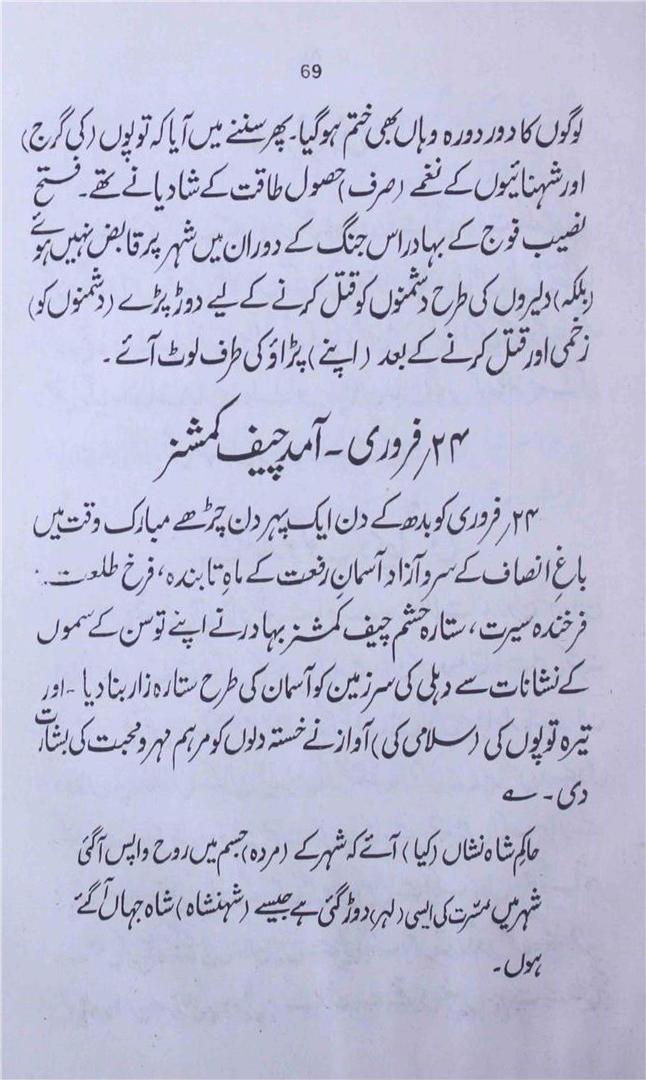 69
لوگوں کا دور دورہ وہاں بھی ختم ہوگیا۔ پھر سننے میں آیا کہ توپوں (کی گرج)
اور شہنائیوں کے نغمے (صرف) حصول طاقت کے شادیانے تھے۔ فتح
نصیب فوج کے بہادر اس جنگ کے دوران میں شہر پر قابض نہیں ہوئے
(بلکہ) دلیروں کی طرح دشمنوں کو قتل کرنے کے لیے دوڑ پڑے (دشمنوں کو)
زخمی اور قتل کرنے کے بعد (اپنے) پڑاؤ کی طرف لوٹ آئے۔
۲۴؍فروری۔ آمد چیف کمشنر
۲۴؍فروری کو بدھ کے دن ایک پہر دن چڑھے مبارک وقت میں
باغِ انصاف کے سرو آزاد آسمانِ رفعت کے ماہِ تابندہ، فرخ طلعت
فرخندہ سیرت، ستارہ حشم چیف کمشنر بہادر نے اپنے توسن کے سموں
کے نشانات سے دہلی کی سرزمین کو آسمان کی طرح ستارہ زار بنا دیا۔ اور
تیرہ توپوں کی (سلامی کی) آواز نے خستہ دلوں کو مرہم مہر و محبت کی بشارت
دی۔ ؎
حاکمِ شاہ نشاں (کیا) آئے کہ شہر کے (مردہ) جسم میں روح واپس آگئی
شہر میں مسرّت کی ایسی (لہر) دوڑ گئی ہے جیسے (شہنشاہ) شاہ جہاں آگئے
ہوں۔